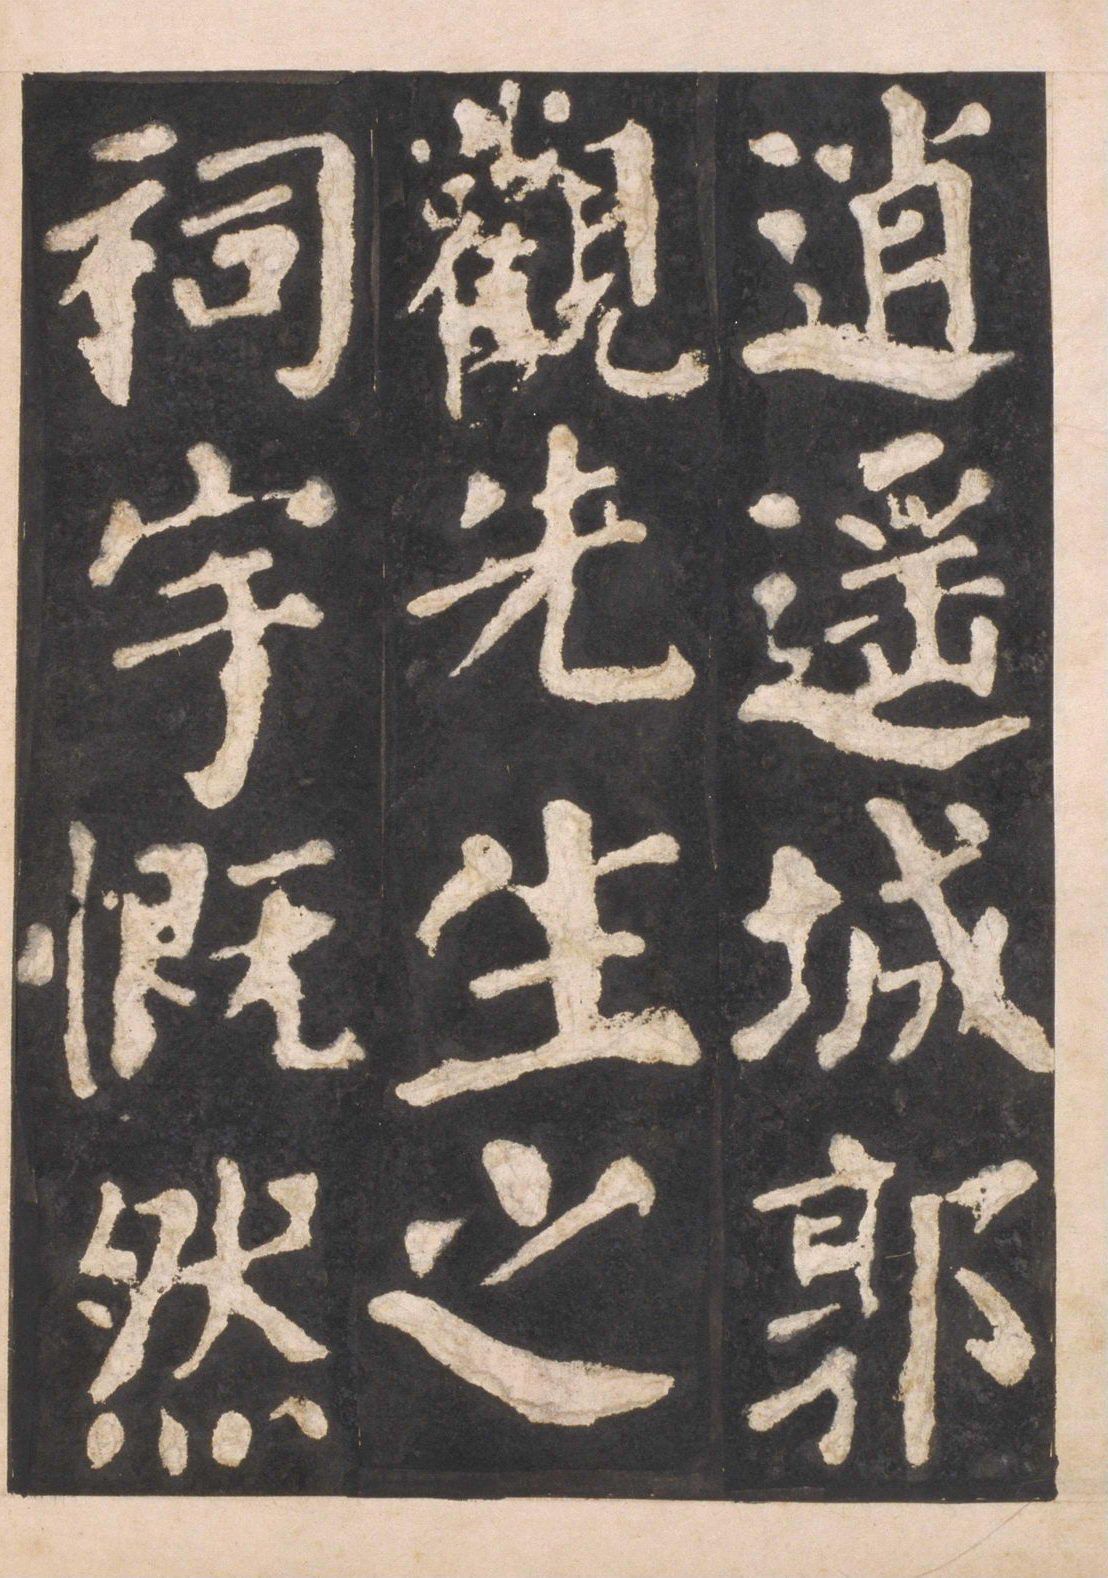 逍遥城郭
觀先生之
祠宇慨然